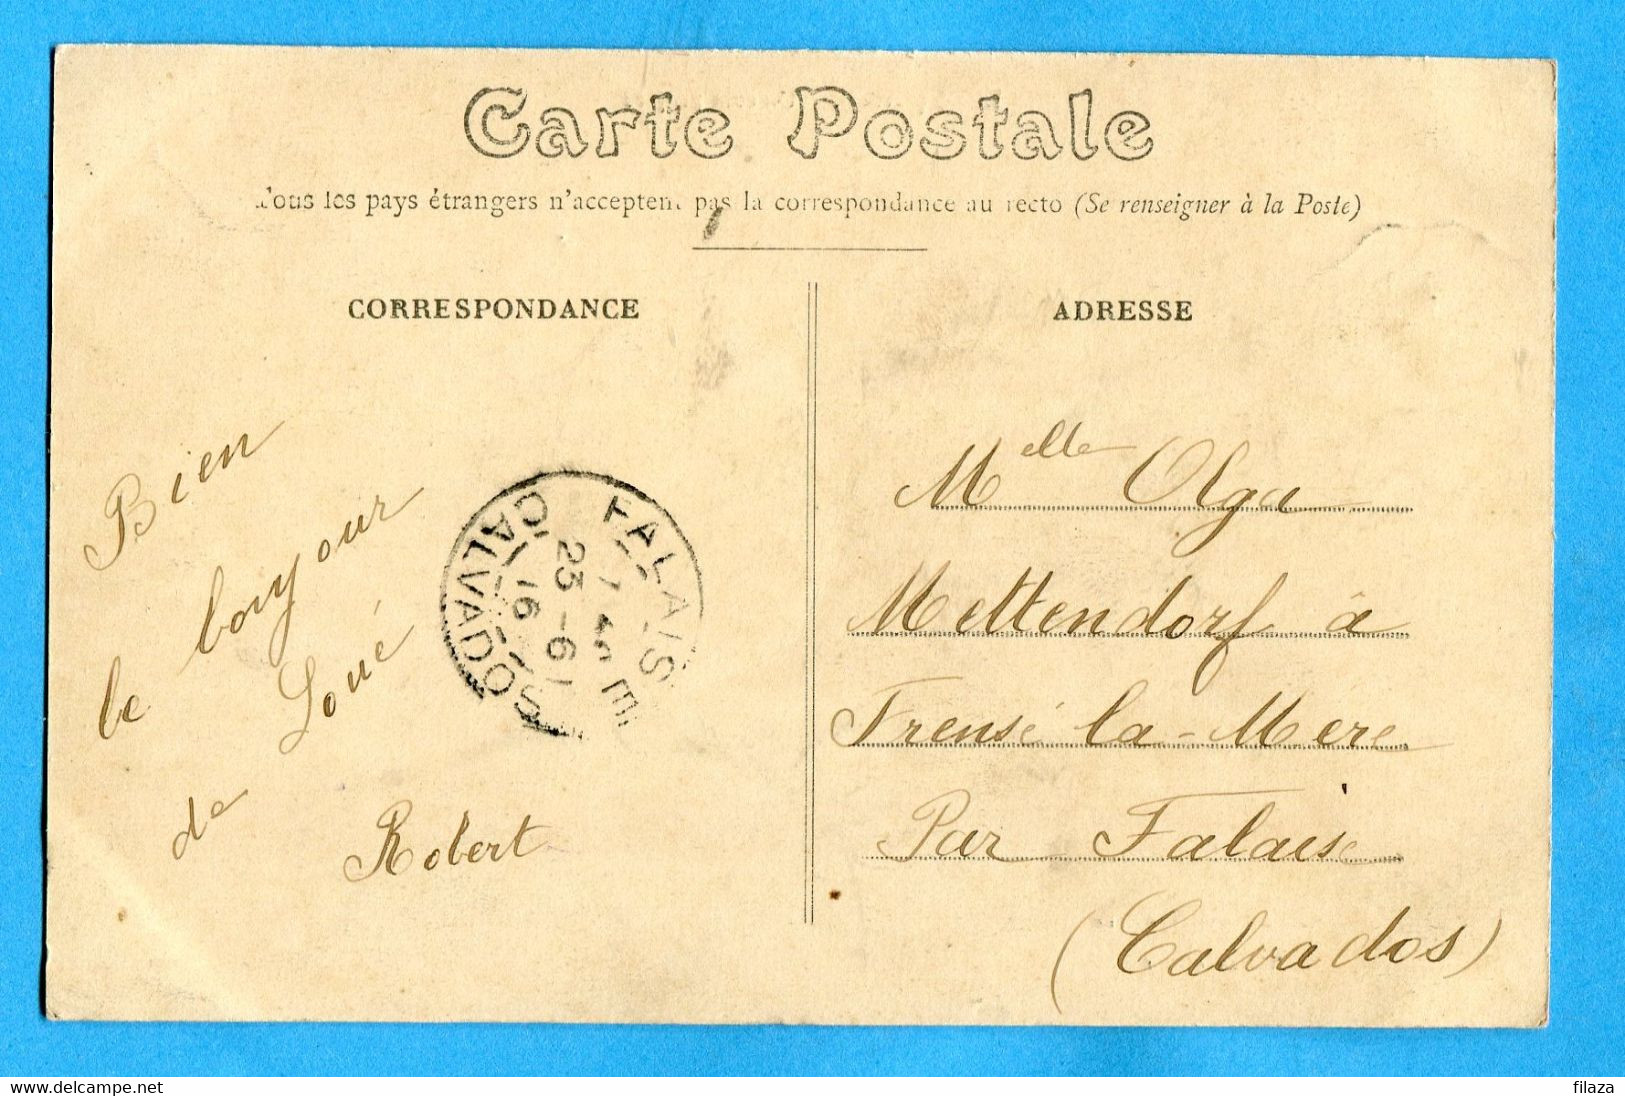 Carte Postale
Tous les pays étrangers n'acceptent pas la correspondance au recto (Se renseigner à la Poste)
CORRESPONDANCE
Bien
le bonjour
de Loué
Robert
FALAISE
14 E
23 -6
16
CALVADOS
ADRESSE
Melle Olga
Mettendorf à
Frensé la-Mere
Par Falaise
(Calvados)
filaza